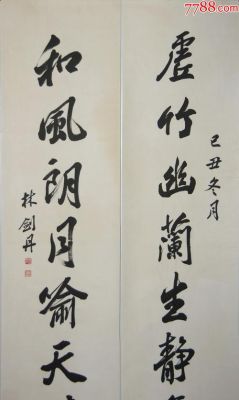 7788.com
己丑冬月
虚竹幽蘭生静
和風朗月喻天
林劍丹